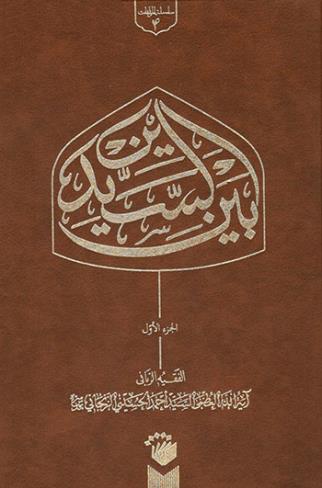 سلسلة المؤلفات
۴
بين السيدين
الجزء الأول
الفقيه الرباني
آية الله العظمى السيد أحمد الحسيني الزنجاني